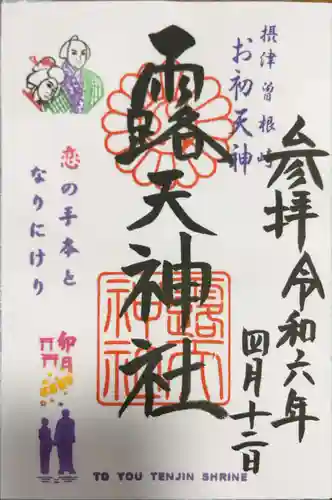 摂津曽根崎
お初天神
参拝
令和六年
四月十二日
露天神社
露天
神社
恋の手本と
なりにけり
卯月
TO YOU TENJIN SHRINE